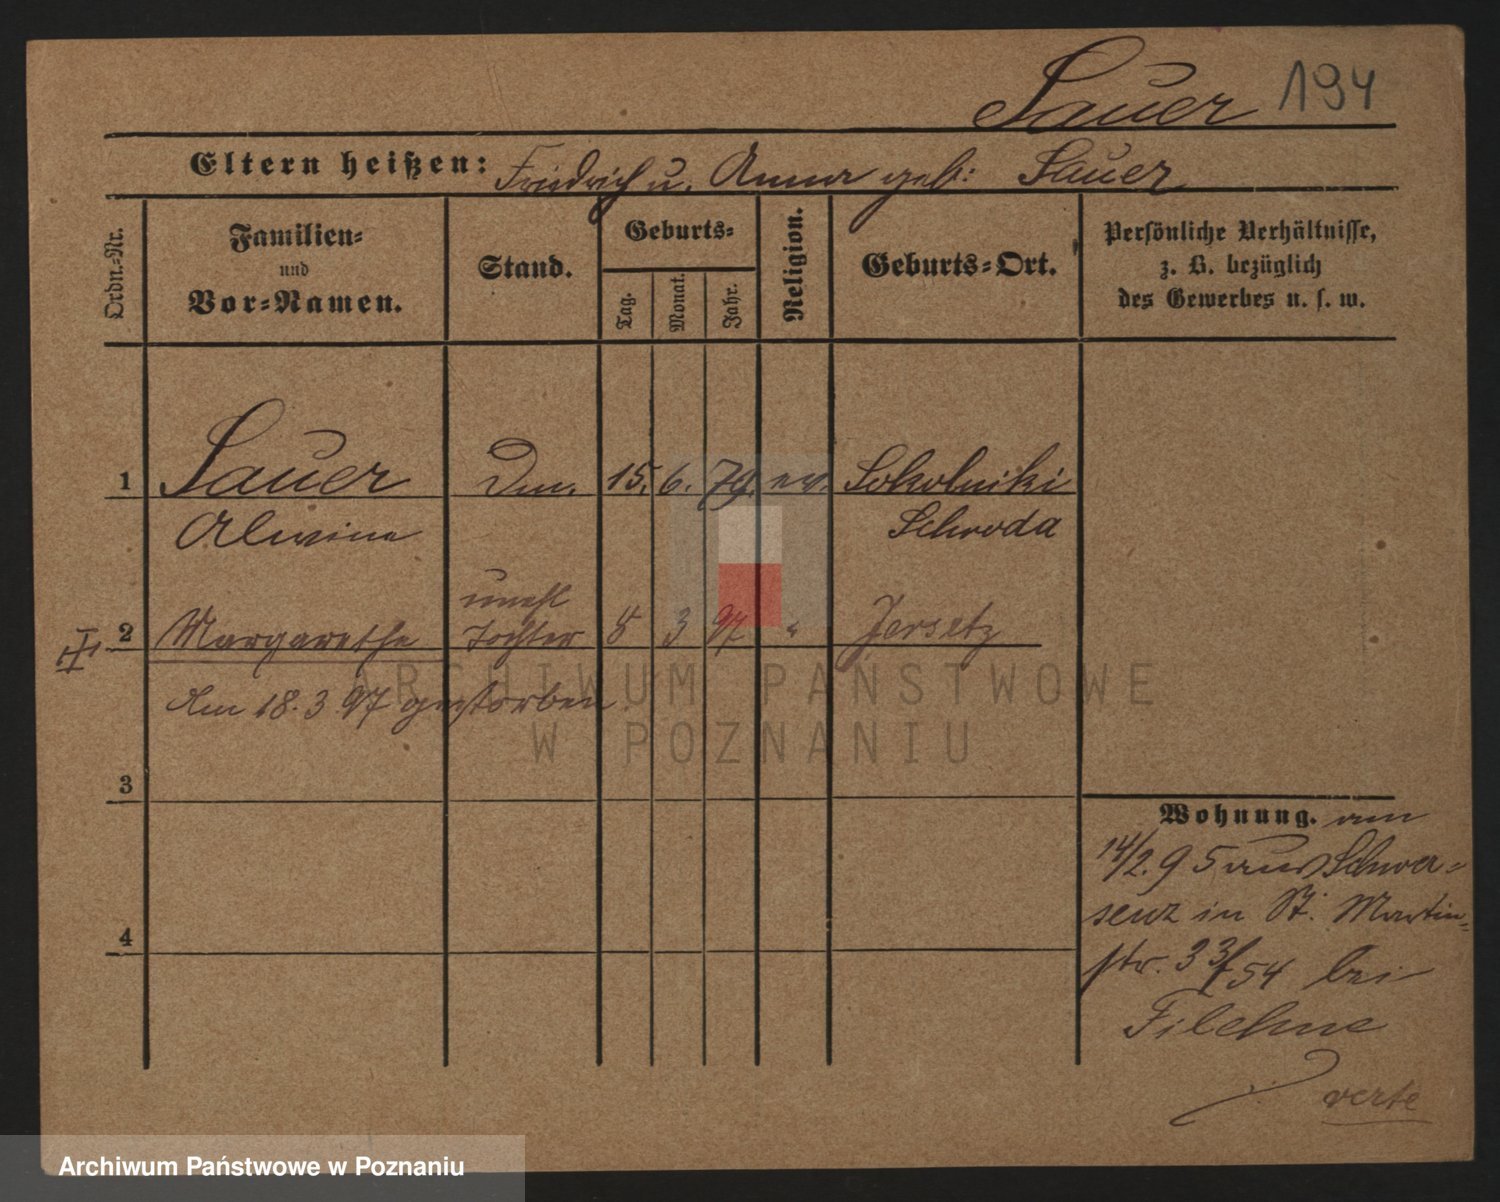 Sauer 194
Eltern heißen: Friedrich u. Anna geb: Sauer
Ordn.-Nr.
Familien-
und
Vor-Namen.
Stand.
Geburts-
Tag.
Monat.
Jahr.
Religion.
Geburts-Ort.
Persönliche Verhältnisse,
z. B. bezüglich
des Gewerbes u. s. w.
1 Sauer 15. 6. 79. ev. Sokolniki
Alwine Schroda
unehl
2 Margarethe Tochter 8 3 97 " Jersetz
Am 18.3.97 gestorben
3
4
Wohnung. am
14/2.95 aus Schwer-
senz in St. Martin-
str. 33/54 bei
Filehne
verte
ARCHIWUM PAŃSTWOWE
W POZNANIU
Archiwum Państwowe w Poznaniu